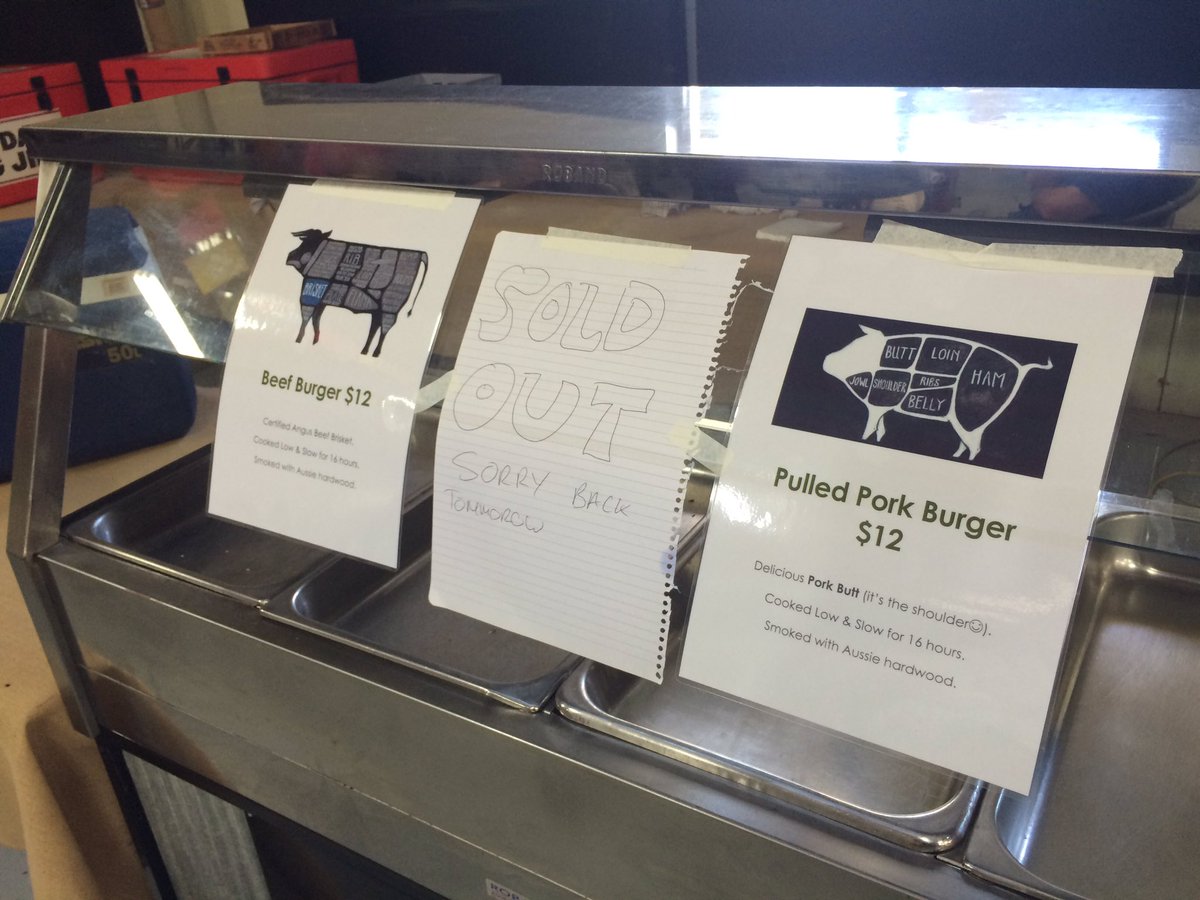 ROBAND
BRISKET
Beef Burger $12
Certified Angus Beef Brisket.
Cooked Low & Slow for 16 hours.
Smoked with Aussie hardwood.
SOLD
OUT
SORRY BACK
TOMMOROW
BUTT LOIN HAM
JOWL SHOULDER RIBS
BELLY
Pulled Pork Burger
$12
Delicious Pork Butt (it's the shoulder☺).
Cooked Low & Slow for 16 hours.
Smoked with Aussie hardwood.